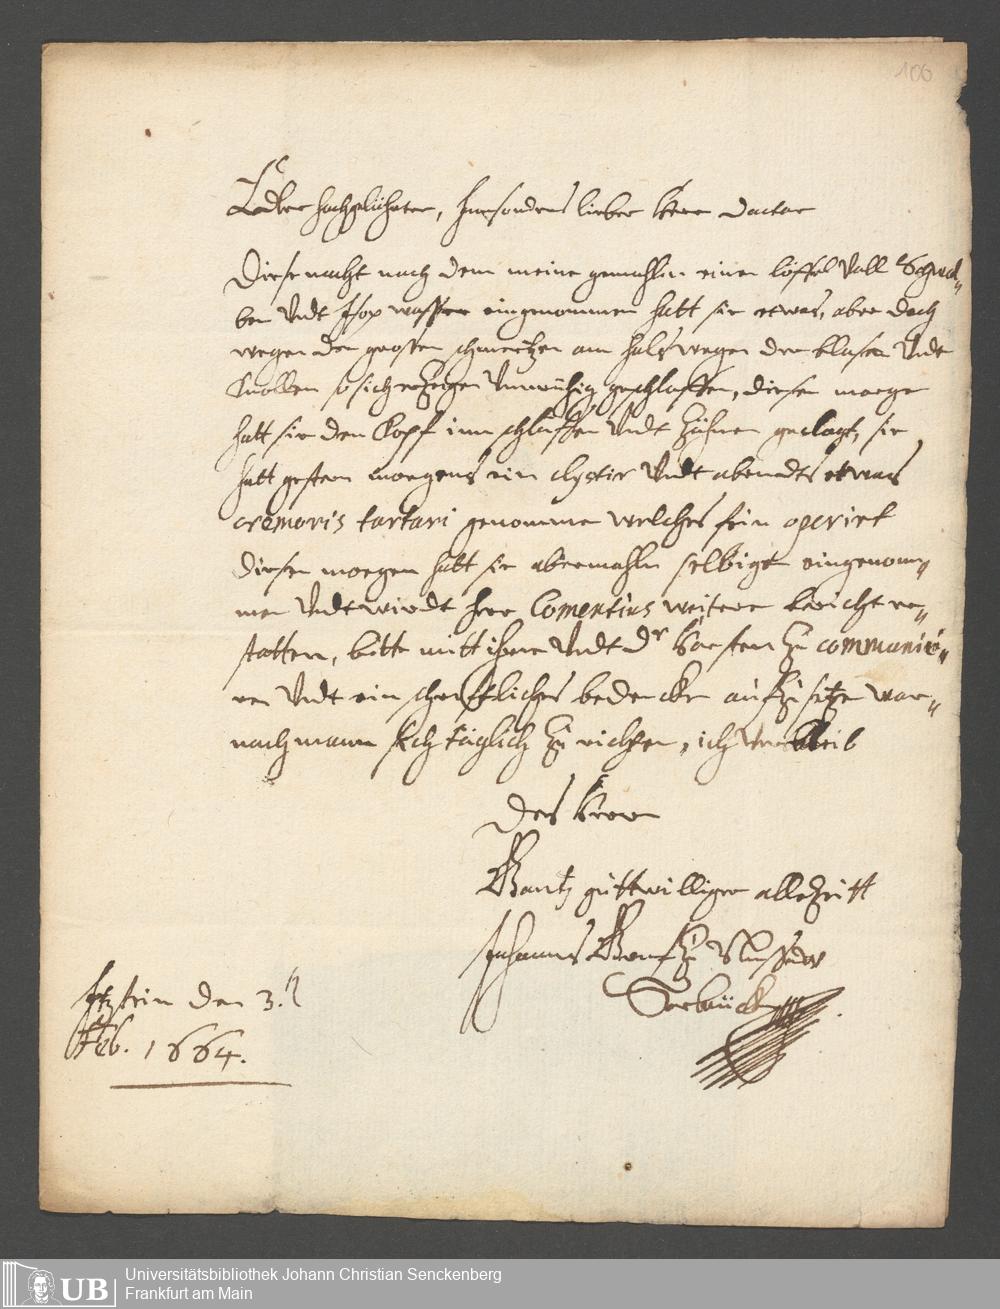 106
Edler hochgelährter, Insonders lieber Herr Doctor
Diese nacht nach dem meine gemahlin einen löffel voll Schwal„
ben Undt Isop wasser eingenommen hatt sie etwas, aber doch
wegen der grosen schmertzen am hals wegen der blasen Undt
Knollen so sich erzeigen Unruhig geschlaffen, diesen morge
hatt sie den Kopf inn schlaffen Undt Zähnen geclagt, sie
hatt gestern morgens ein clystir Undt abendts etwas
cremoris tartari genommen welches fein operirt
diesen morgen hatt sie abermahln selbiges eingenom„
men Undt wirdt Herr Comentius weitern bericht er„
statten, bitte mitt ihme Undt Dr Horsten zu communici„
ren Undt ein schrifftliches bedencken auffzusetzen war„
nach mann sich täglich zu richten, ich verbleib
Des Herrn
Gantz guttwilliger allezeitt
Johannes Graf zu Nassaw
Sarbrücken
Itzstein den 3.
Feb. 1664.
UB
Universitätsbibliothek Johann Christian Senckenberg
Frankfurt am Main